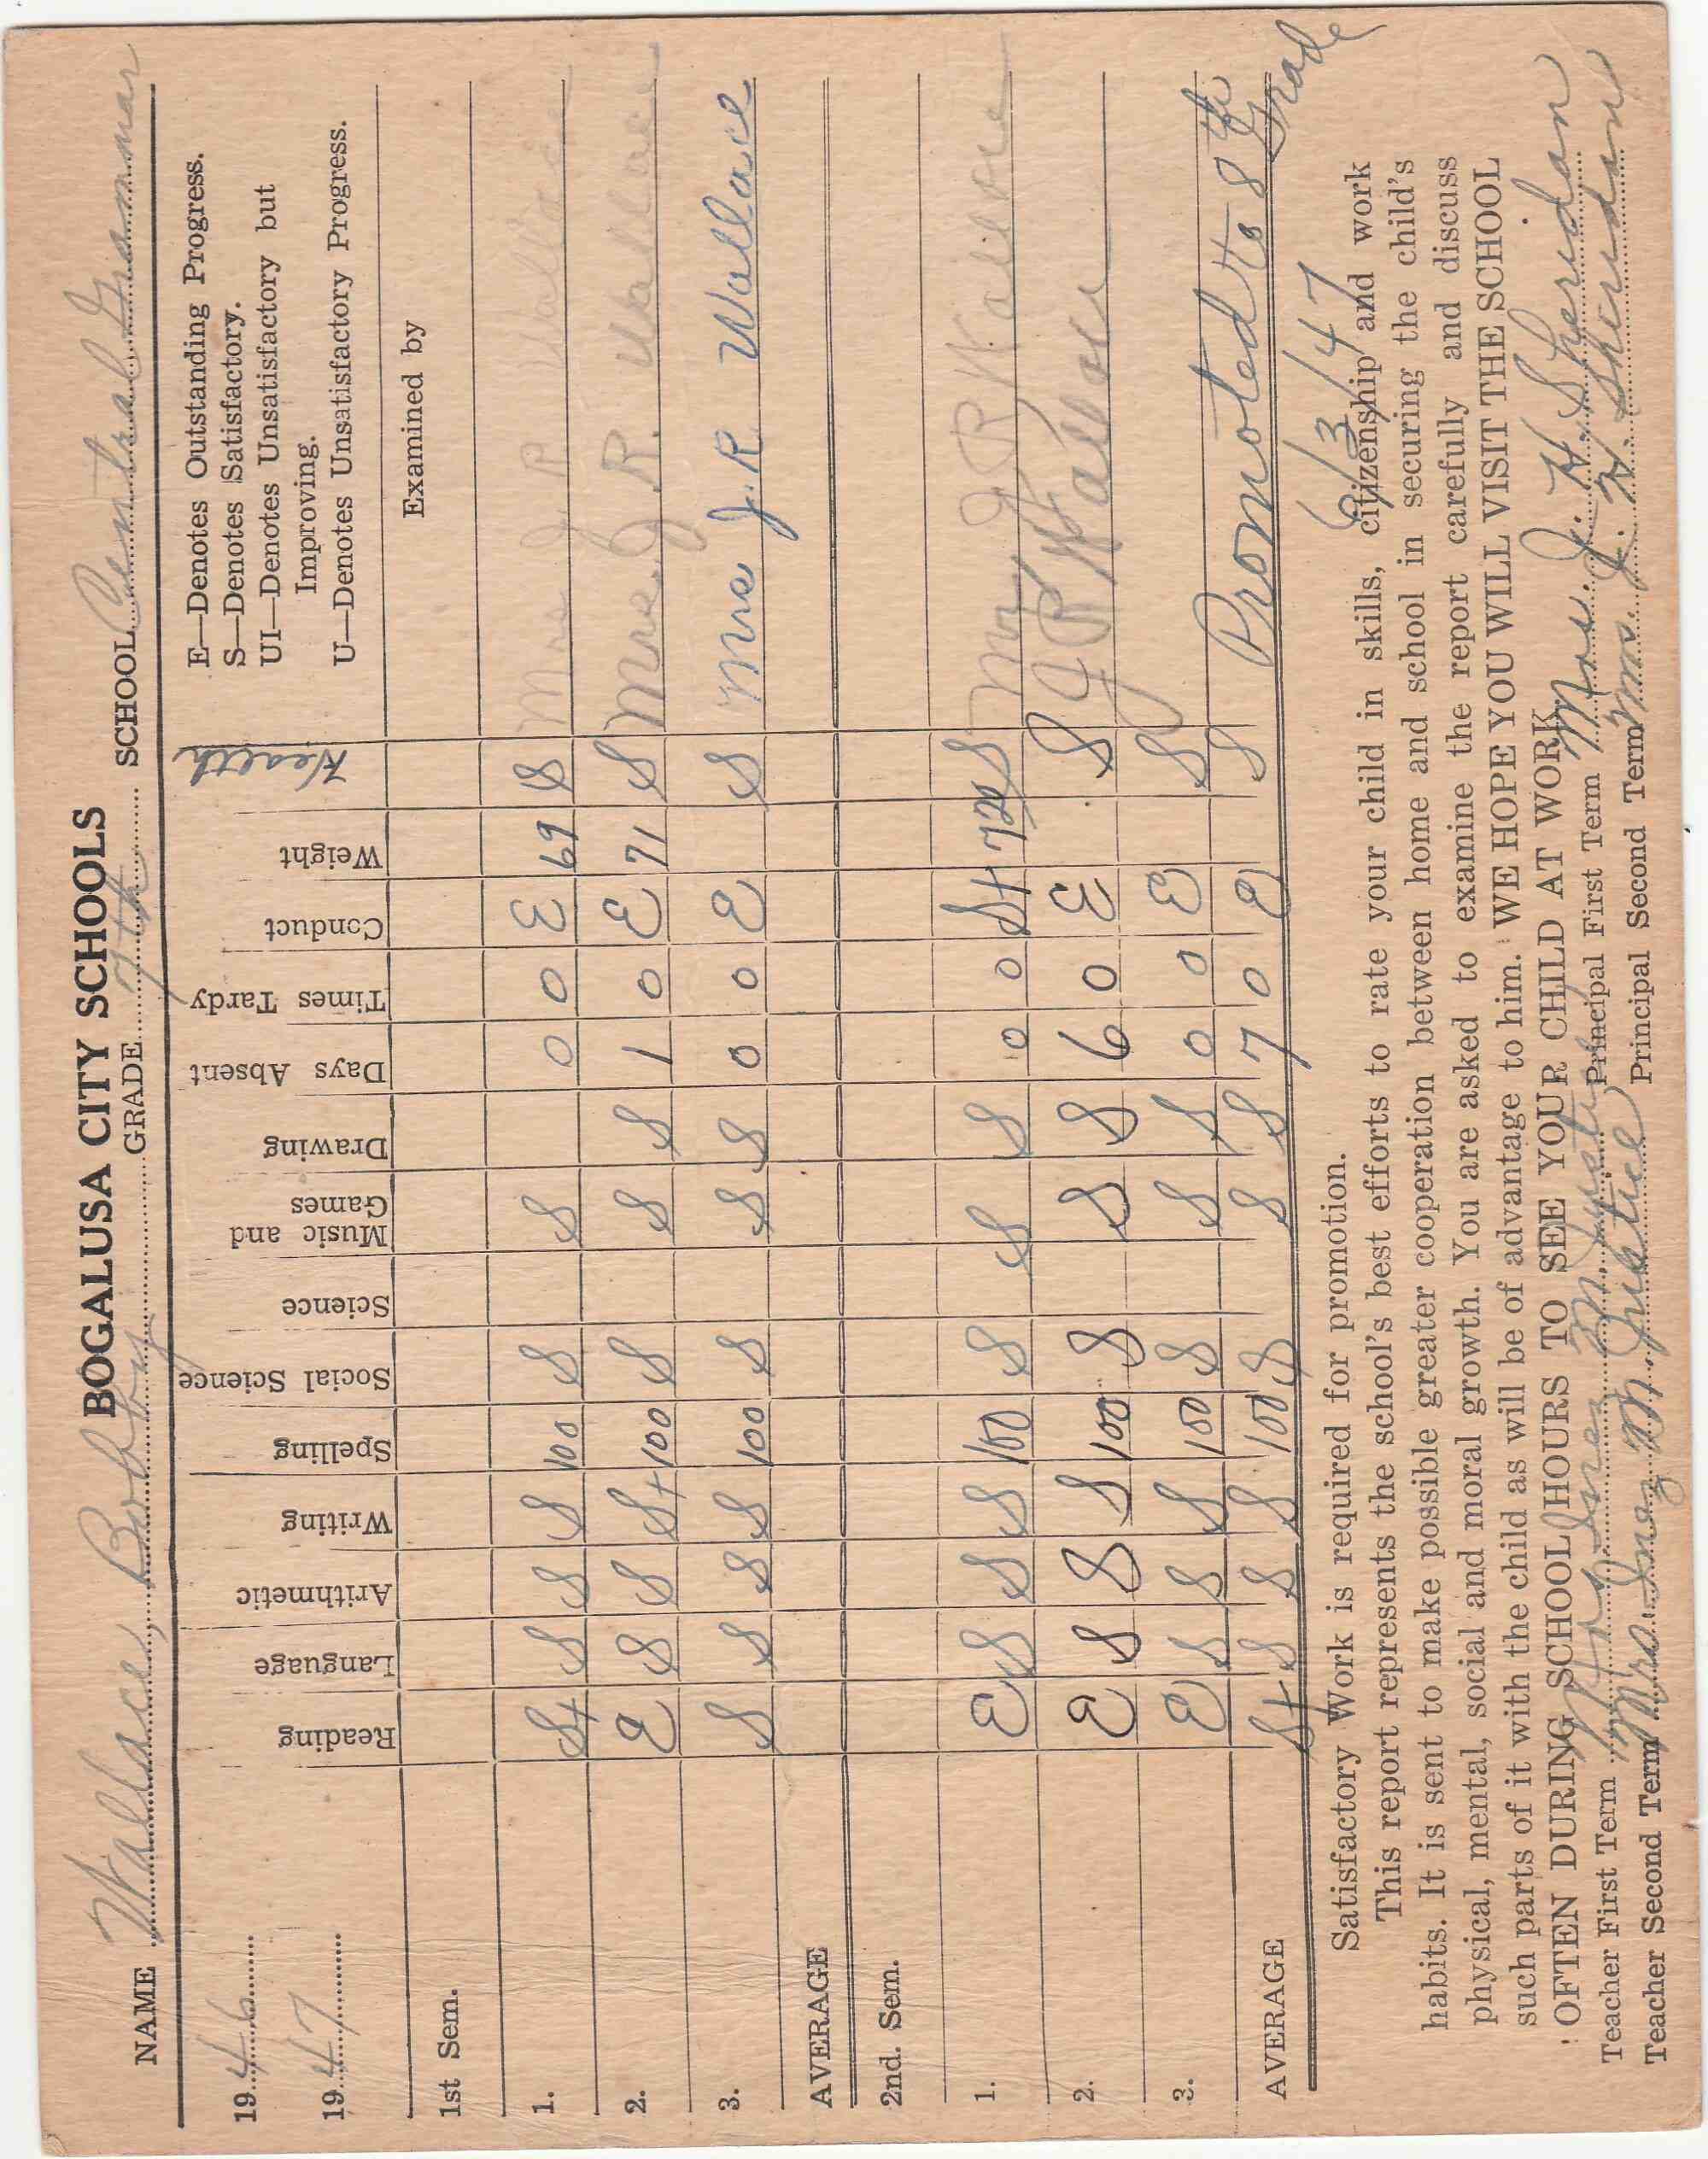 BOGALUSA CITY SCHOOLS
NAME Wallace, Bobby GRADE 7th SCHOOL Central Grammar
1946
1947
Reading
Language
Arithmetic
Writing
Spelling
Social Science
Science
Music and Games
Drawing
Days Absent
Times Tardy
Conduct
Weight
Health
E—Denotes Outstanding Progress.
S—Denotes Satisfactory.
UI—Denotes Unsatisfactory but
Improving.
U—Denotes Unsatisfactory Progress.
Examined by
1st Sem.
1. S+ S S S 100 S S 0 0 E 69 S Mrs J R Wallace
2. E S S S+ 100 S S S 1 0 E 71 S Mrs. J. R. Wallace
3. S S S S 100 S S S 0 0 E S Mrs J. R. Wallace
AVERAGE
2nd. Sem.
1. E S S S 100 S S S 0 0 S+ 72 S J R Wallace
2. E S S S 100 S S S 6 0 E S J R Wallace
3. E S S S 100 S S S 0 0 E S
AVERAGE S+ S S S 100 S S S 7 0 E S Promoted to 8th Grade
6/3/47
Satisfactory Work is required for promotion.
This report represents the school's best efforts to rate your child in skills, citizenship and work
habits. It is sent to make possible greater cooperation between home and school in securing the child's
physical, mental, social and moral growth. You are asked to examine the report carefully and discuss
such parts of it with the child as will be of advantage to him. WE HOPE YOU WILL VISIT THE SCHOOL
OFTEN DURING SCHOOL HOURS TO SEE YOUR CHILD AT WORK
Teacher First Term Mrs. Inez M. Justice Principal First Term Mrs. J. H. Sheridan
Teacher Second Term Mrs. Inez M. Justice Principal Second Term Mrs. J. H. Sheridan